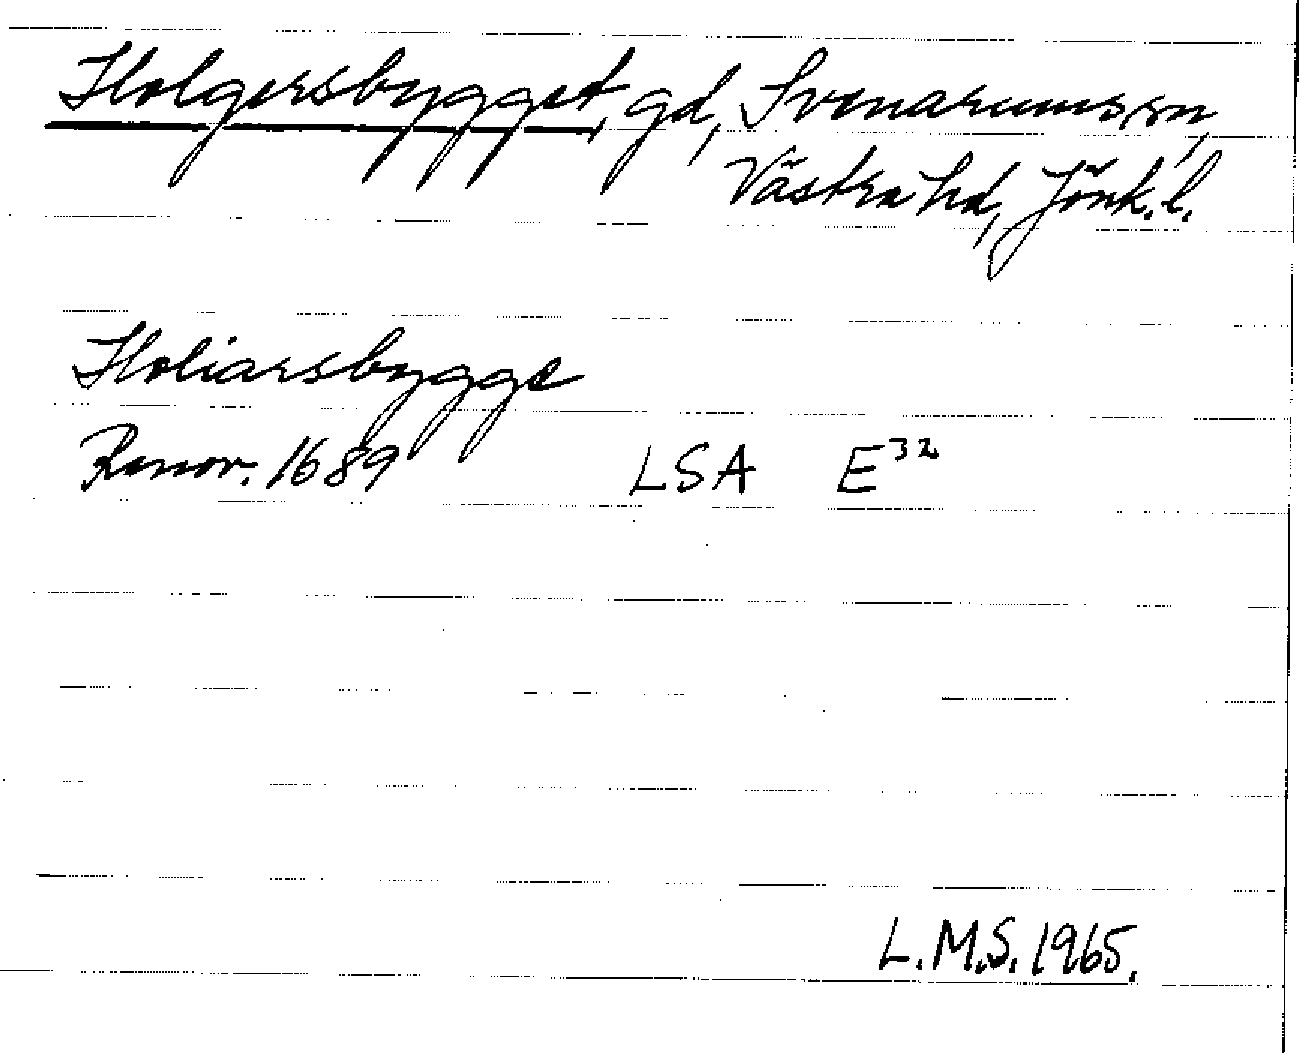 Holgersbygget, gd, Svenarums sn,
Västra hd, Jönk. l.
Holiarsbygge
Renov. 1689 LSA E32
L.M.S. 1965.